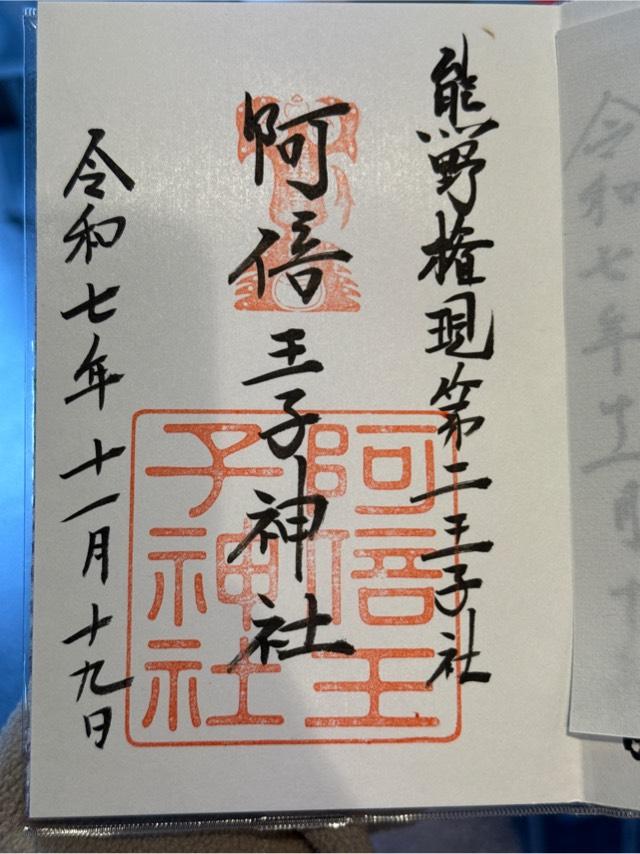 熊野権現第二王子社
阿倍王子神社
阿倍王
子神社
令和七年十一月十九日
令和七年十一月十